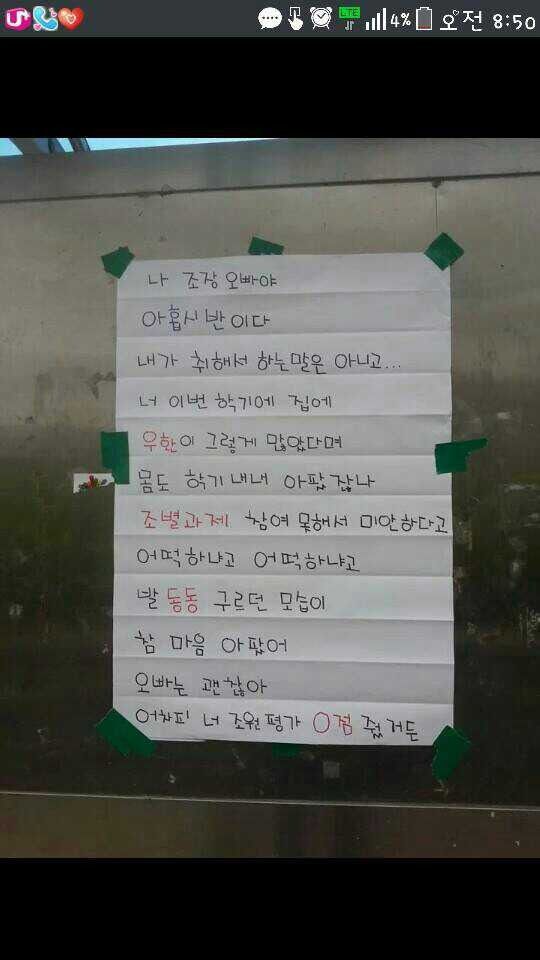 4% 오전 8:50
LTE
나 조장오빠야
아홉시 반이다
내가 취해서 하는말은 아니고...
너 이번 학기에 집에
우환이 그렇게 많았다며
몸도 학기내내 아팠잖나
조별과제 참여 못해서 미안하다고
어떡하냐고 어떡하냐고
발 동동 구르던 모습이
참 마음 아팠어
오빠는 괜찮아
어차피 너 조원평가 0점 줬거든